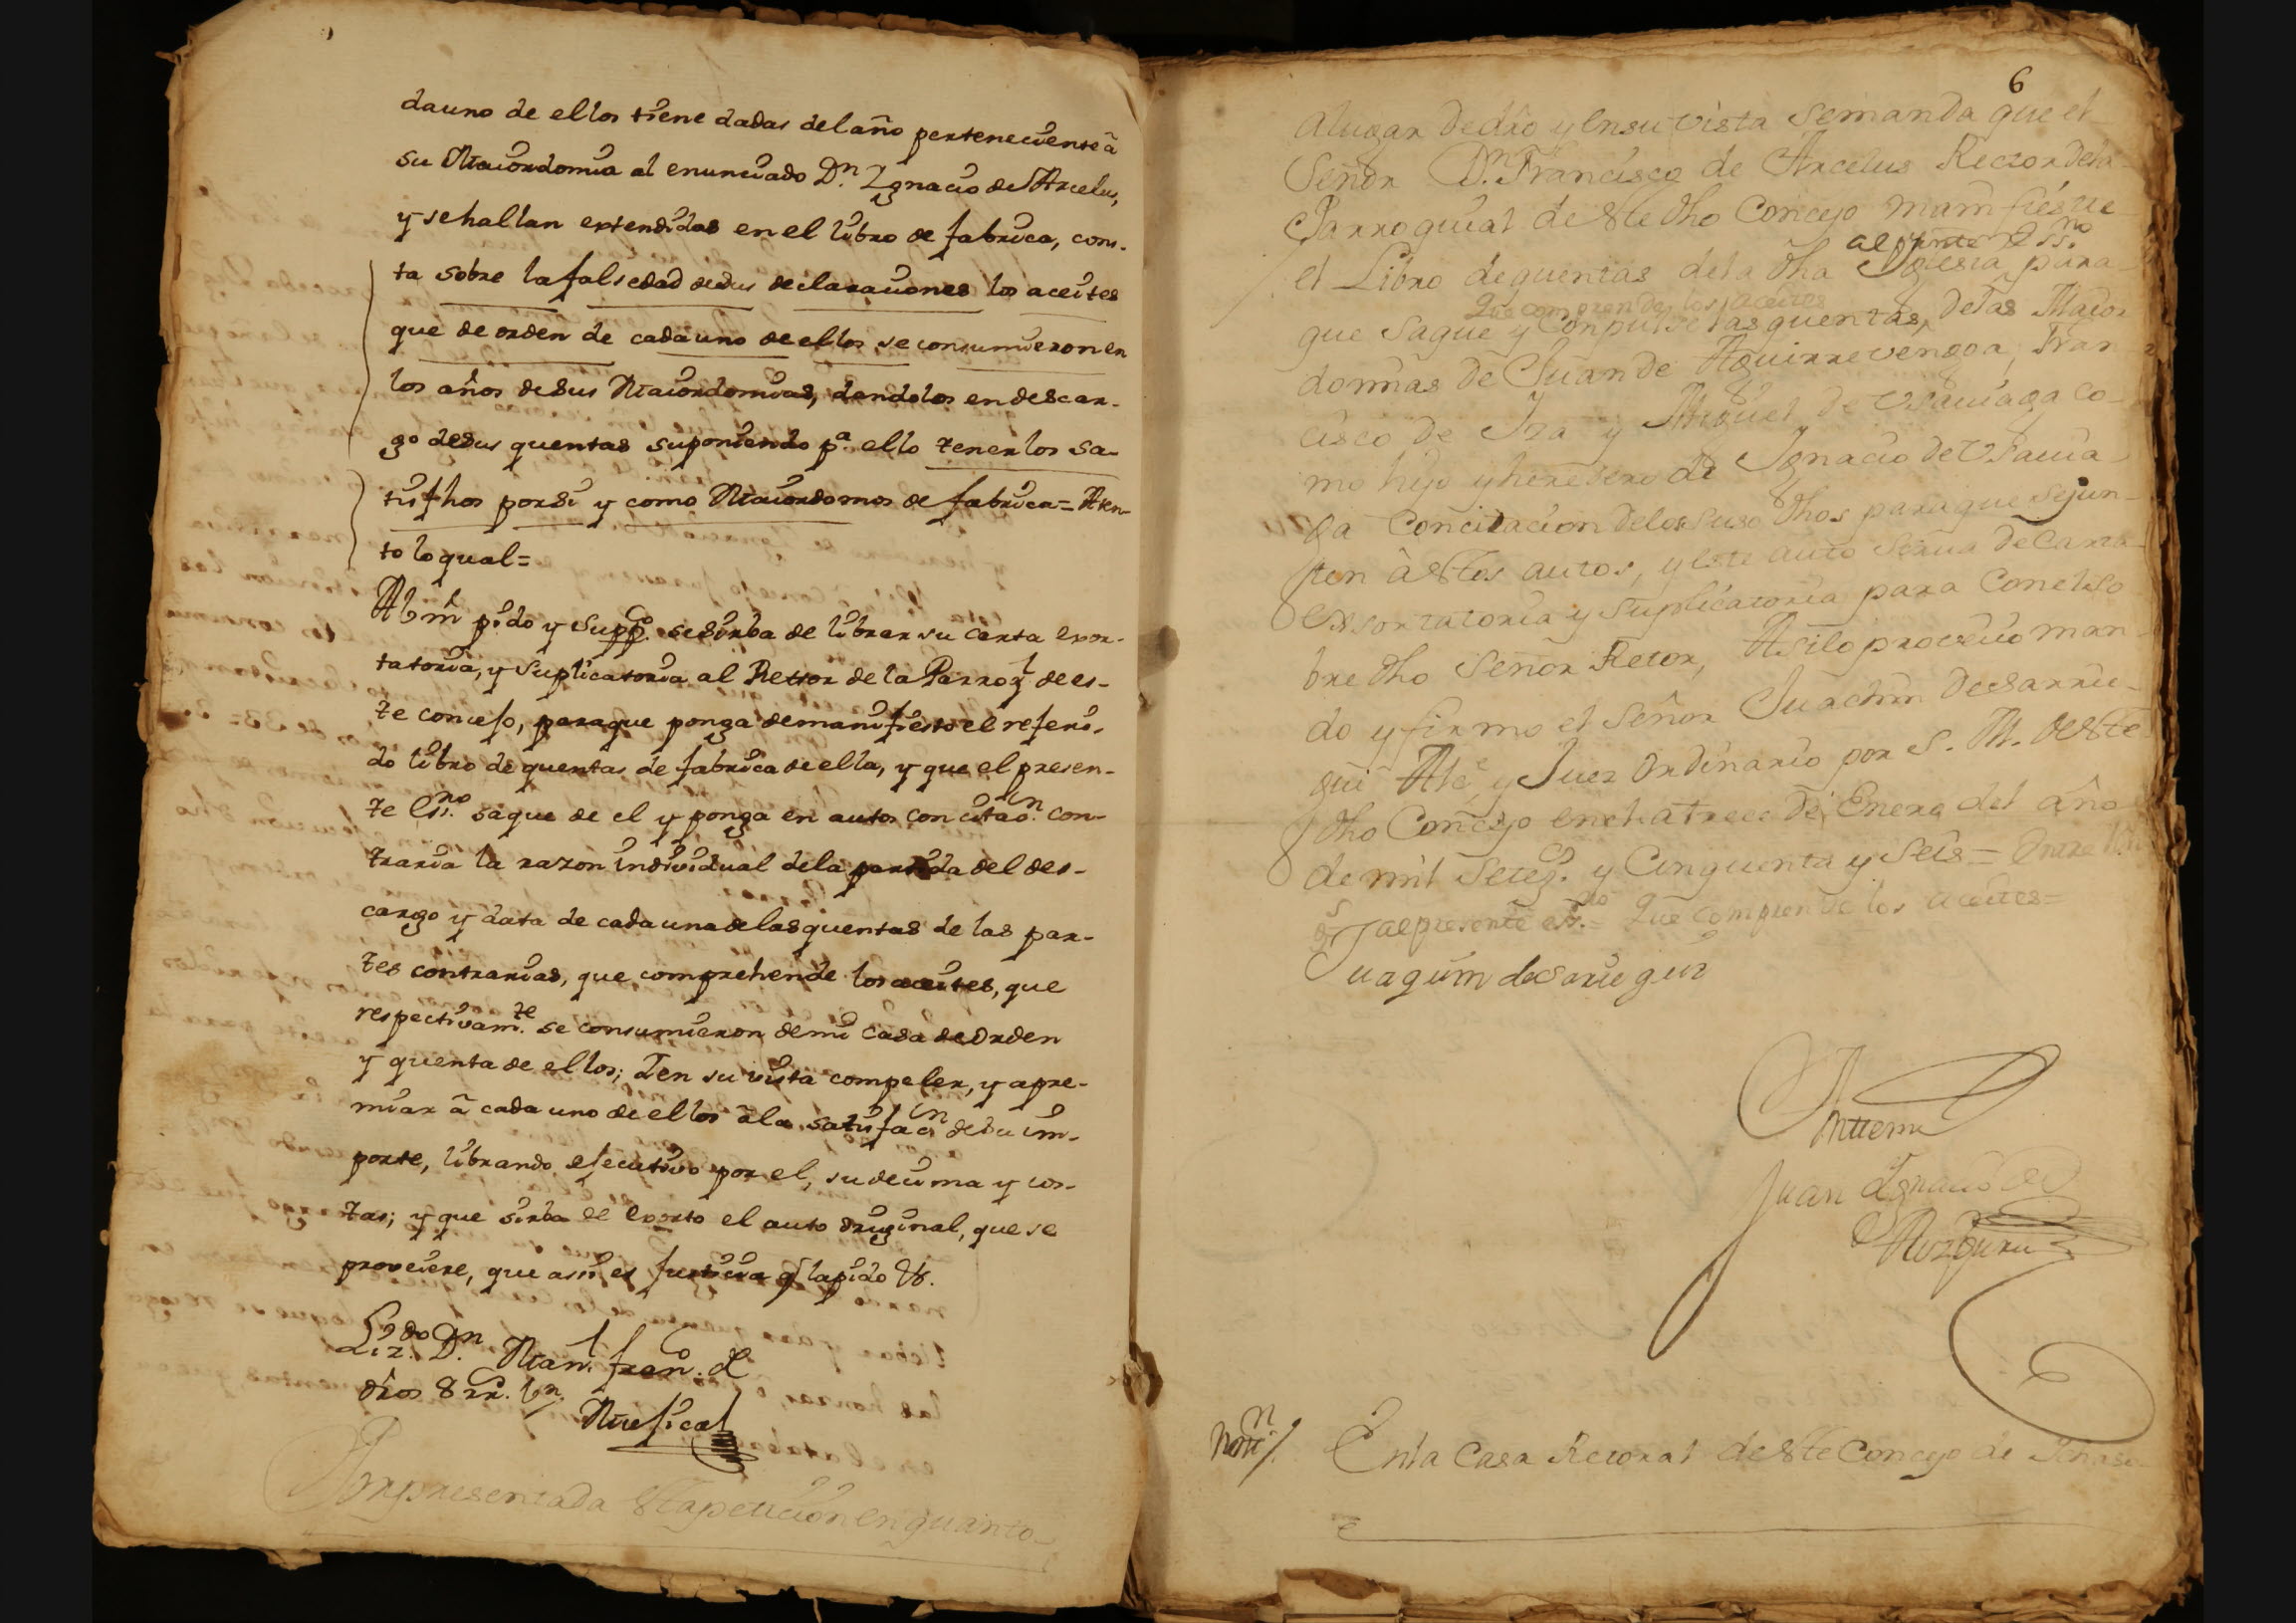 dauno de ellos tiene dadas del año perteneciente â
su Maiordomia al enunciado D.n Ignacio de Arcelus,
y se hallan extendidas en el libro de fabrica, cons-
ta sobre la falsedad de sus declaraciones los aceites
que de orden de cada uno de ellos se consumieron en
los años de sus Maiordomias, dandolos en descar-
go de sus quentas suponiendo p.a ello tenerlos sa-
tisfhos por si y como Maiordomos de fabrica = Aten-
to lo qual =
A Vm pido y Supp.co se sirba de librar su carta exor-
tatoria, y Suplicatoria al Rettor de la Parroq.l de es-
te concejo, paraque ponga de manifiesto el referi-
do libro de quentas de fabrica de ella, y que el presen-
te Ess.no saque de el y ponga en autos con citao.n con-
traria la razon individual de la partida del des-
cargo y data de cada una de las quentas de las par-
tes contrarias, que comprehende los aceites, que
respectivam.te se consumieron de mi casa de orden
y quenta de ellos; Y en su vista compeler, y apre-
miar â cada uno de ellos â la satisfac.n de su im-
porte, librando ejecutivo por el, su decima y cos-
tas; y que sirba de exorto el auto original, que se
proveiere, que assi es Justicia q lapido &.
Liz.do D.n Man.l Fran.co de
dros 8 rr. Vn.
Mugica
Por presentada esta peticion en quanto
6
a lugar de dro y en su vista Se manda que el
Señor D.n Francisco de Arcelus Rector de la
Parroquial de este dho Concejo manifieste
al presente Ess.no
el Libro de quentas de la dha Iglesia para
Que comprende los aceites
que Saque y Conpulse las quentas, de las Maior
domias de Juan de Aguirrevengoa, Fran
cisco de Iza y Miguel de Usauiaga co-
mo hijo y heredero de Ignacio de Usauia
ga Con citacion de los suso dhos para que se jun-
ten â estos autos, y este auto Sirua de Carta
Exsortatoria y Suplicatoria para Con el so
bre dho Señor Retor, Asi lo proveio man-
do y firmo el Señor Juachin de Sarrie-
gui Al.e y Juez Ordinario por S. M. de este
dho Concejo en el a trece de Enero del año
de mil Setez.s y Cinquenta y Seis = Entre R.s
al presente ess.no = Que comprende los aceites =
Juaquin de Sariegui
Antemi
Juan Ignacio de
Aizpuru
Noti.n
En la Casa Retoral de este Concejo de